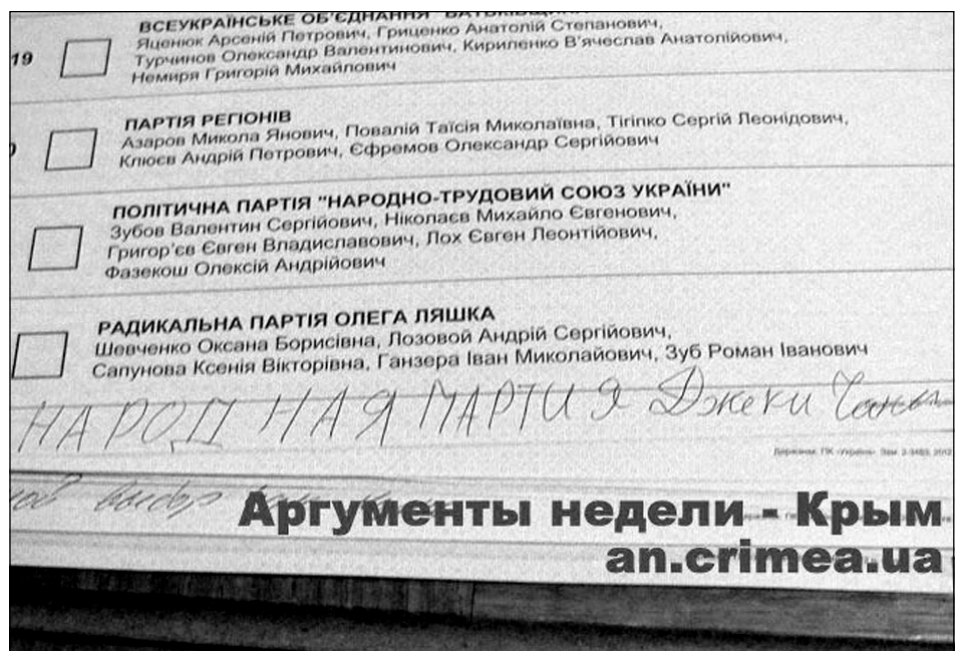 ВСЕУКРАЇНСЬКЕ ОБ'ЄДНАННЯ "БАТЬКІВЩИНА"
19
Яценюк Арсеній Петрович, Гриценко Анатолій Степанович,
Турчинов Олександр Валентинович, Кириленко В'ячеслав Анатолійович,
Немиря Григорій Михайлович
ПАРТІЯ РЕГІОНІВ
Азаров Микола Янович, Повалій Таїсія Миколаївна, Тігіпко Сергій Леонідович,
Клюєв Андрій Петрович, Єфремов Олександр Сергійович
ПОЛІТИЧНА ПАРТІЯ "НАРОДНО-ТРУДОВИЙ СОЮЗ УКРАЇНИ"
Зубов Валентин Сергійович, Ніколаєв Михайло Євгенович,
Григор'єв Євген Владиславович, Лох Євген Леонтійович,
Фазекош Олексій Андрійович
РАДИКАЛЬНА ПАРТІЯ ОЛЕГА ЛЯШКА
Шевченко Оксана Борисівна, Лозовой Андрій Сергійович,
Сапунова Ксенія Вікторівна, Ганзера Іван Миколайович, Зуб Роман Іванович
НАРОДНАЯ ПАРТИЯ Джеки Чана
выбор
Аргументы недели - Крым
an.crimea.ua